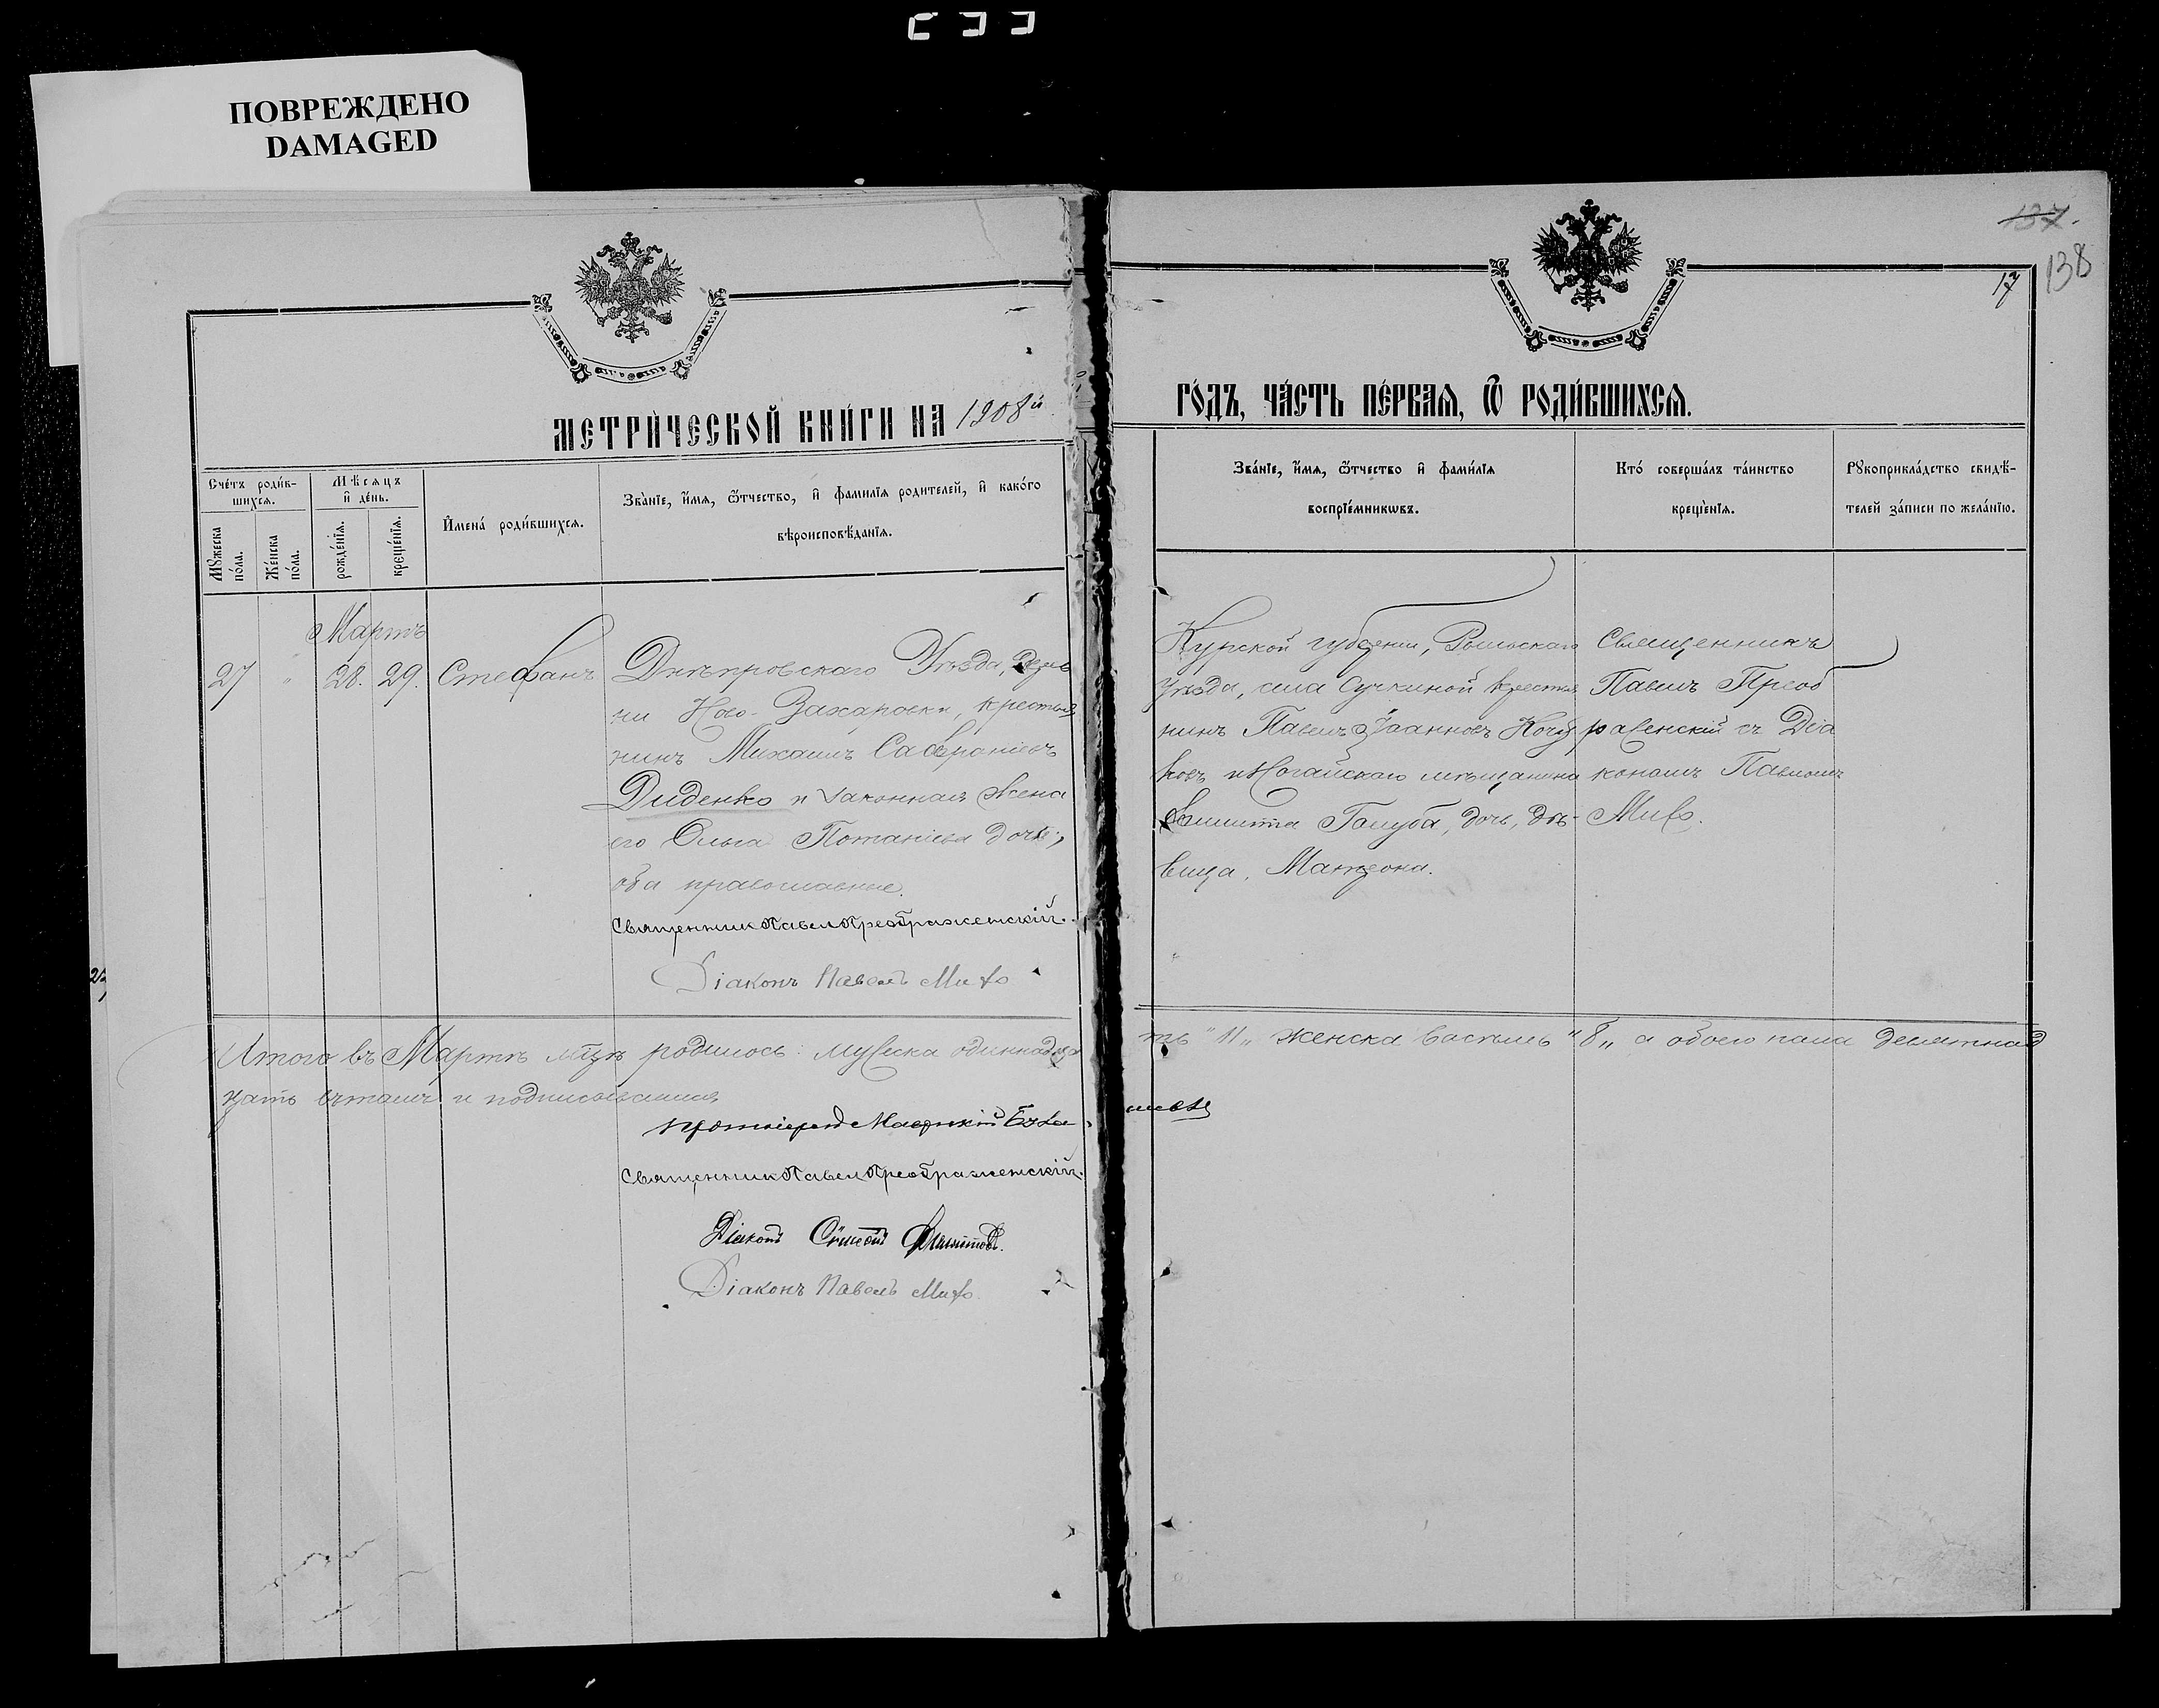 ПОВРЕЖДЕНО
DAMAGED
137.
138
17
МЕТРИ́ЧЕСКОЙ КНИ́ГИ НА 1908й
ГО́ДЪ, ЧА́СТЬ ПЕ́РВАЯ, Ѿ РОДИ́ВШИХСЯ.
Сче́тъ роди́в-
шихся.
Мꙋ́жеска
по́ла.
Же́нска
по́ла.
Мѣ́сяцъ
и҆ де́нь.
рожде́нїя.
креще́нїя.
И҆мена́ роди́вшихся.
Зва́нїе, и҆́мя, ѻ҆́тчество, и҆ фами́лїя родителей, и҆ како́го
вѣроисповѣ́данїя.
Зва́нїе, и҆́мя, ѻ҆́тчество и҆ фами́лїя
воспрїе́мникѡвъ.
Кто́ соверша́лъ та́инство
креще́нїя.
Рꙋкоприкла́дство свидѣ́-
телей за́писи по жела́нїю.
Мартъ
27 " 28. 29. Стефанъ
Днѣпровскаго Уѣзда, дерев
ни Ново-Захаровки, крестья
нинъ Михаилъ
Диденко и законная жена
его Ольга Потапіева дочь;
оба православные.
Священник Павел Преображенскій.
Діаконъ Павелъ Михо
Курской губерніи, Рыльскаго
уѣзда, села Сучкиной крестья
нинъ Павелъ Іоанновъ Кочу
ковъ и Ногайскаго мѣщанина
Филиппа Голуба, дочь, дѣ-
вица, Матрона.
Священникъ
Павелъ Преоб
раженскій съ Діа
кономъ Павломъ
Михо.
Итого въ Мартѣ мцѣ родилось мужеска одиннадца
ть "11" женска восемь "8" а обоего пола девятнад
цать въ томъ и подписываемся
Протоіерей
Священник Павел Преображенскій.
Діаконъ Симеонъ
Діаконъ Павелъ Михо.